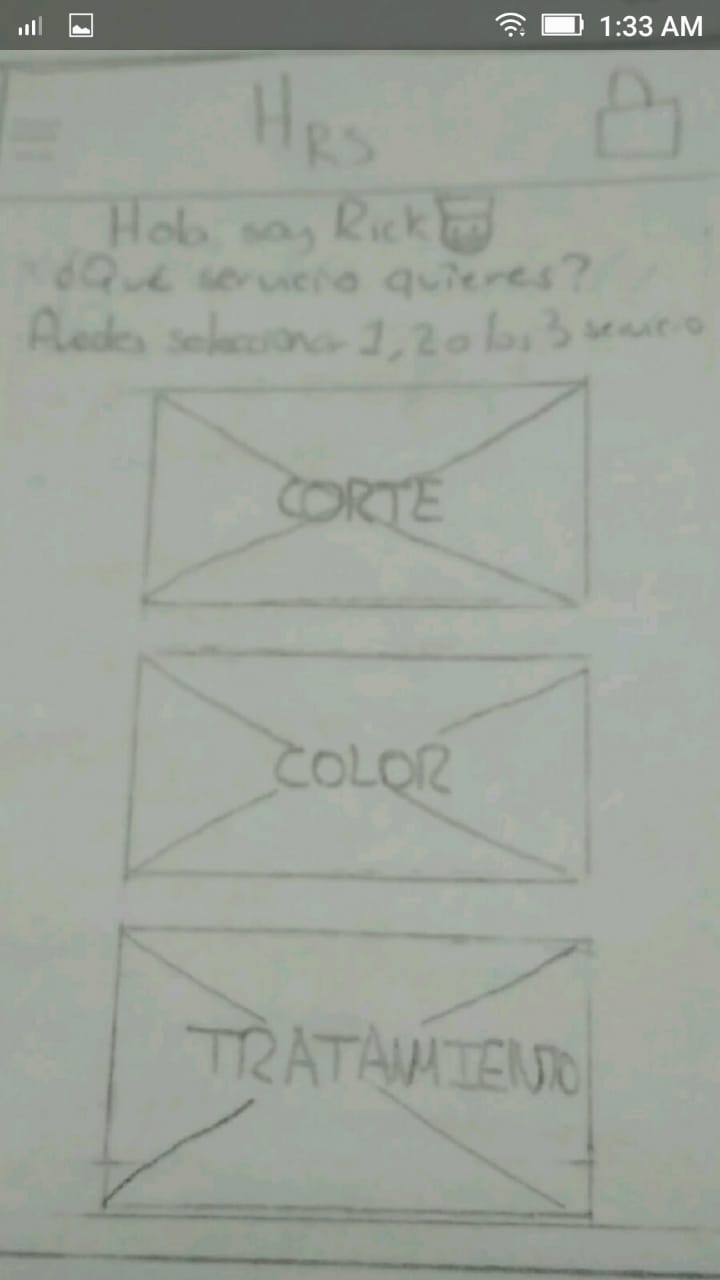 1:33 AM
HRS
Hola soy Rick
¿Qué servicio quieres?
Puedes seleccionar 1, 2 o los 3 servicio
CORTE
COLOR
TRATAMIENTO